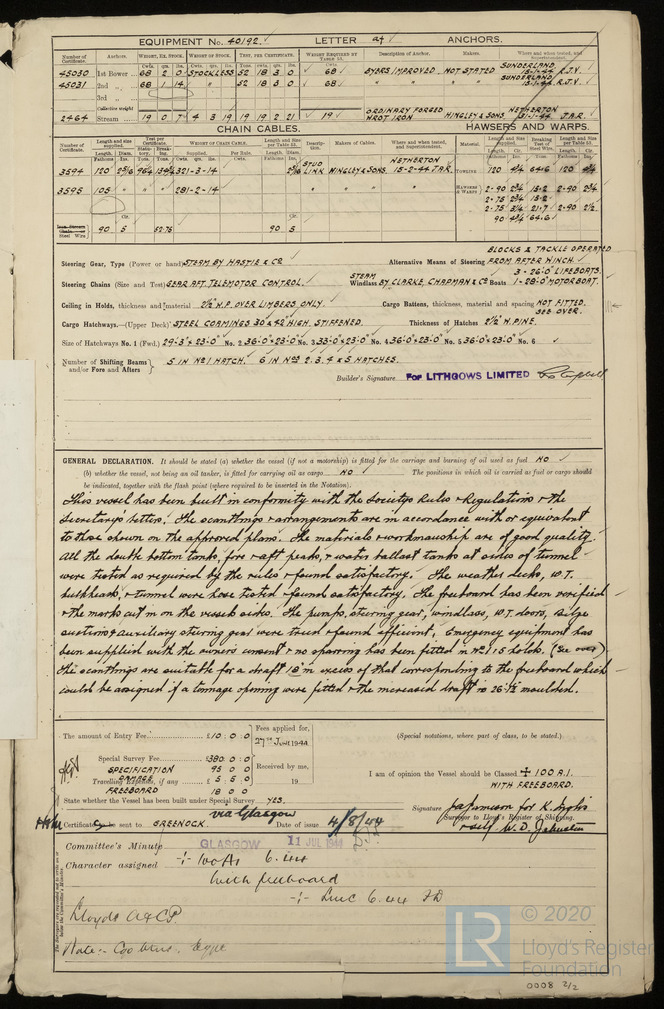 EQUIPMENT No. 40192. LETTER a† ANCHORS.
Number of Certificate. Anchors. WEIGHT, EX. STOCK. WEIGHT OF STOCK. TEST, PER CERTIFICATE. WEIGHT REQUIRED BY TABLE 53. Description of Anchor. Makers. Where and when tested, and Superintendent.
Cwts. qrs. lbs. Cwts. qrs. lbs. Tons. cwts. qrs. lbs. Cwts.
45030 1st Bower 68 2 0 STOCKLESS 52 18 3 0 68 BYERS IMPROVED NOT STATED SUNDERLAND 15-1-44 R.J.V.
45031 2nd 〃 68 1 14 52 18 3 0 68 " " " " SUNDERLAND 15-1-44 R.J.V.
3rd 〃
Collective weight
2464 Stream 19 0 7 4 3 19 19 19 2 21 19 ORDINARY FORGED WROT IRON HINGLEY & SONS NETHERTON 31-1-44 J.A.R.
CHAIN CABLES. HAWSERS AND WARPS.
Number of Certificate. Length and size supplied. Test per Certificate. WEIGHT OF CHAIN CABLE. Length and Size per Table 53. Description. Makers of Cables. Where and when tested, and Superintendent. Material. Length and Size supplied. Breaking Test of Steel Wire. Length and Size per Table 53.
Fathoms Diam. Tons. Tons. Supplied. Per Rule. Fathoms Diam.
3594 120 321-3-14 STUD LINK HINGLEY & SONS NETHERTON 15-2-44 J.A.R. TOWING 120 4¾ 64·6 120 4¾
3595 105 " 281-2-14 " " " " HAWSERS & WARPS 2-90 2¾ 15·2 2-90 2¾
2-75 2¾ 15·2
2-75 3¼ 21·7 2-90 2½
90 4¾ 64·6
Steel Wire 90 5 52·75 90 5
Steering Gear, Type (Power or hand) STEAM BY HASTIE & CO Alternative Means of Steering BLOCKS & TACKLE OPERATED FROM AFTER WINCH.
Steering Chains (Size and Test) GEAR AFT. TELEMOTOR CONTROL. Windlass STEAM BY CLARKE, CHAPMAN & CO Boats 3-26·0 LIFEBOATS. 1-28·0 MOTORBOAT.
Ceiling in Holds, thickness and material 2½ N.P. OVER LIMBERS ONLY. Cargo Battens, thickness, material and spacing NOT FITTED. SEE OVER.
Cargo Hatchways.—(Upper Deck) STEEL COAMINGS 30 & 42 HIGH, STIFFENED. Thickness of Hatches 2½ N. PINE.
Size of Hatchways No. 1 (Fwd.) 29-3 x 23-0 No. 2 36-0 x 23-0 No. 3 33-0 x 23-0 No. 4 36-0 x 23-0 No. 5 36-0 x 23-0 No. 6
Number of Shifting Beams and/or Fore and Afters 5 IN NO 1 HATCH. 6 IN NOS 2. 3. 4 & 5 HATCHES.
Builder's Signature FOR LITHGOWS LIMITED
GENERAL DECLARATION. It should be stated (a) whether the vessel (if not a motorship) is fitted for the carriage and burning of oil used as fuel NO
(b) whether the vessel, not being an oil tanker, is fitted for carrying oil as cargo NO The positions in which oil is carried as fuel or cargo should
be indicated, together with the flash point (where required to be inserted in the Notation).
This vessel has been built in conformity with the Societys Rules & Regulations & the
Secretarys letters. The scantlings & arrangements are in accordance with or equivalent
to those shown on the approved plans. The materials & workmanship are of good quality.
All the double bottom tanks, fore & aft peaks, & water ballast tanks at sides of tunnel
were tested as required by the rules & found satisfactory. The weather decks, W.T.
bulkheads, & tunnel were hose tested & found satisfactory. The freeboard has been verified
& the marks cut in on the vessels sides. The pumps, steering gear, windlass, W.T. doors, bilge
suctions & auxiliary steering gear were tried & found efficient, Emergency equipment has
been supplied with the owners consent & no sparring has been fitted in Nos 1 & 5 holds. (See over)
The scantlings are suitable for a draft 18 in excess of that corresponding to the freeboard which
could be assigned if a tonnage opening were fitted & the increased draft is 26·1½ moulded.
The amount of Entry Fee £10 : 0 : 0 Fees applied for, 27TH JUNE 1944 (Special notations, where part of class, to be stated.)
Special Survey Fee £380 0 0
SPECIFICATION 95 0 0 Received by me,
DAMAGE
Travelling Expenses, if any £ 5 5 0 19 I am of opinion the Vessel should be Classed ✠ 100 A.1.
FREEBOARD 18 0 0 WITH FREEBOARD.
State whether the Vessel has been built under Special Survey YES.
Signature J. A. Jameson for K. Inglis
Surveyor to Lloyd's Register of Shipping.
& self W. D. Johnston
via Glasgow
Certificate to be sent to GREENOCK. Date of issue 4/8/44
Committee's Minute GLASGOW 11 JUL 1944
Character assigned 100A1 6.44
with freeboard
LMC 6.44 FD
Lloyds A & CP.
© 2020
LR Lloyd's Register
Foundation
0008 2/2